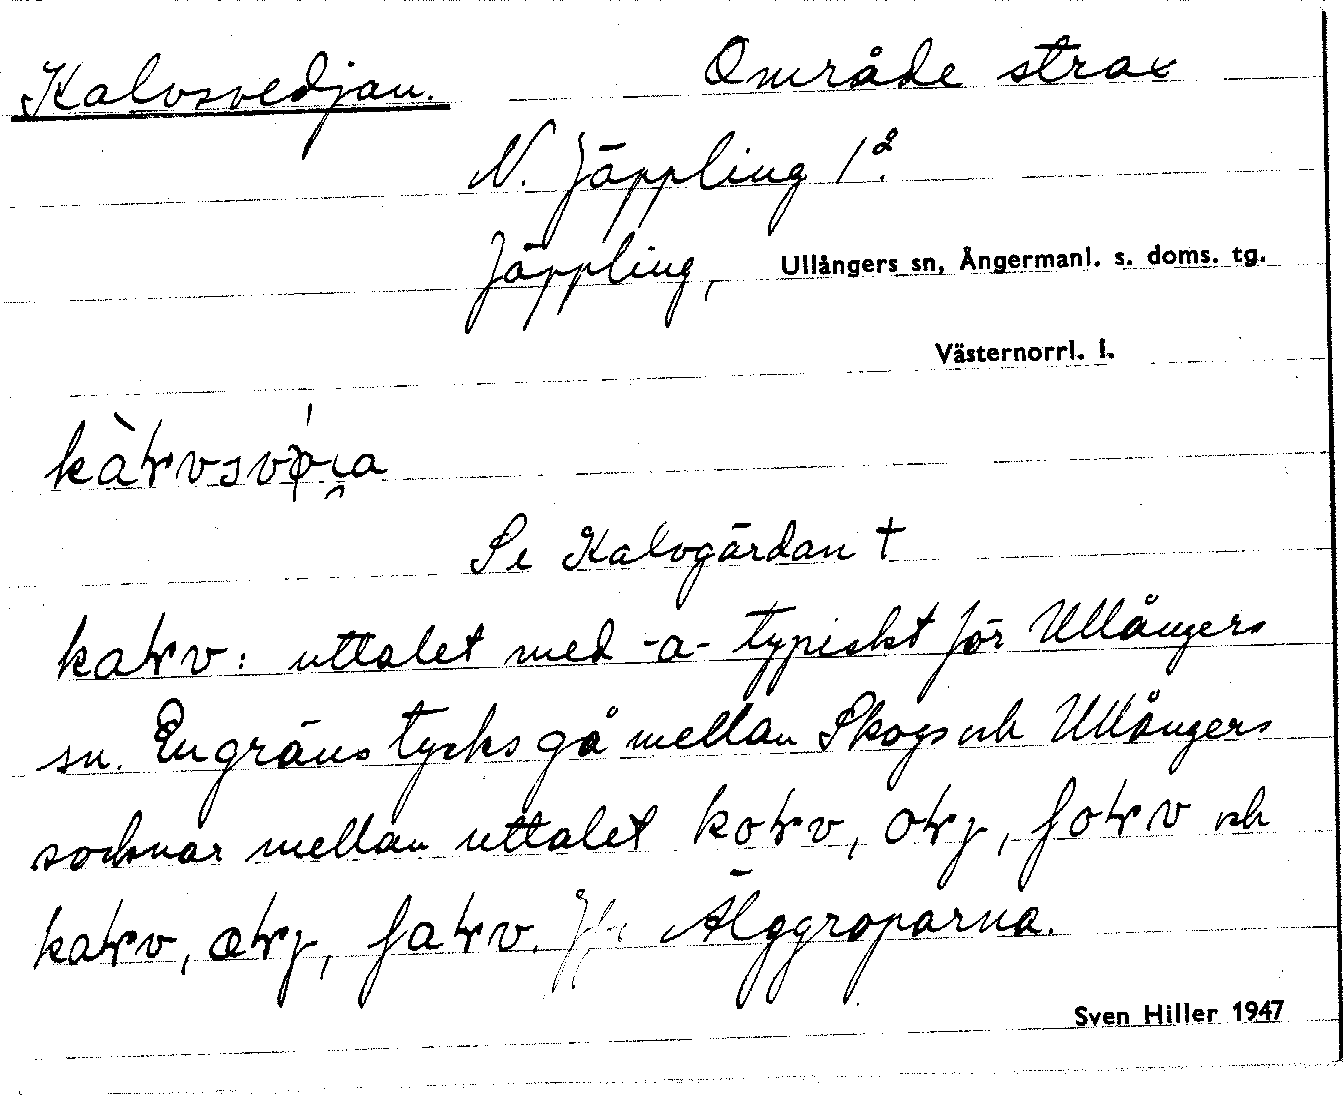 Kalvsvedjan. Område strax
N. Jäppling 1å.
Jäppling, Ullångers sn, Ångermanl. s. doms. tg.
Västernorrl. l.
Se Kalvgärdan †
uttalet med -a- typiskt för Ullångers
sn. En gräns tycks gå mellan Skogs och Ullångers
socknar mellan uttalet och
Jfr Älggroparna.
Sven Hiller 1947